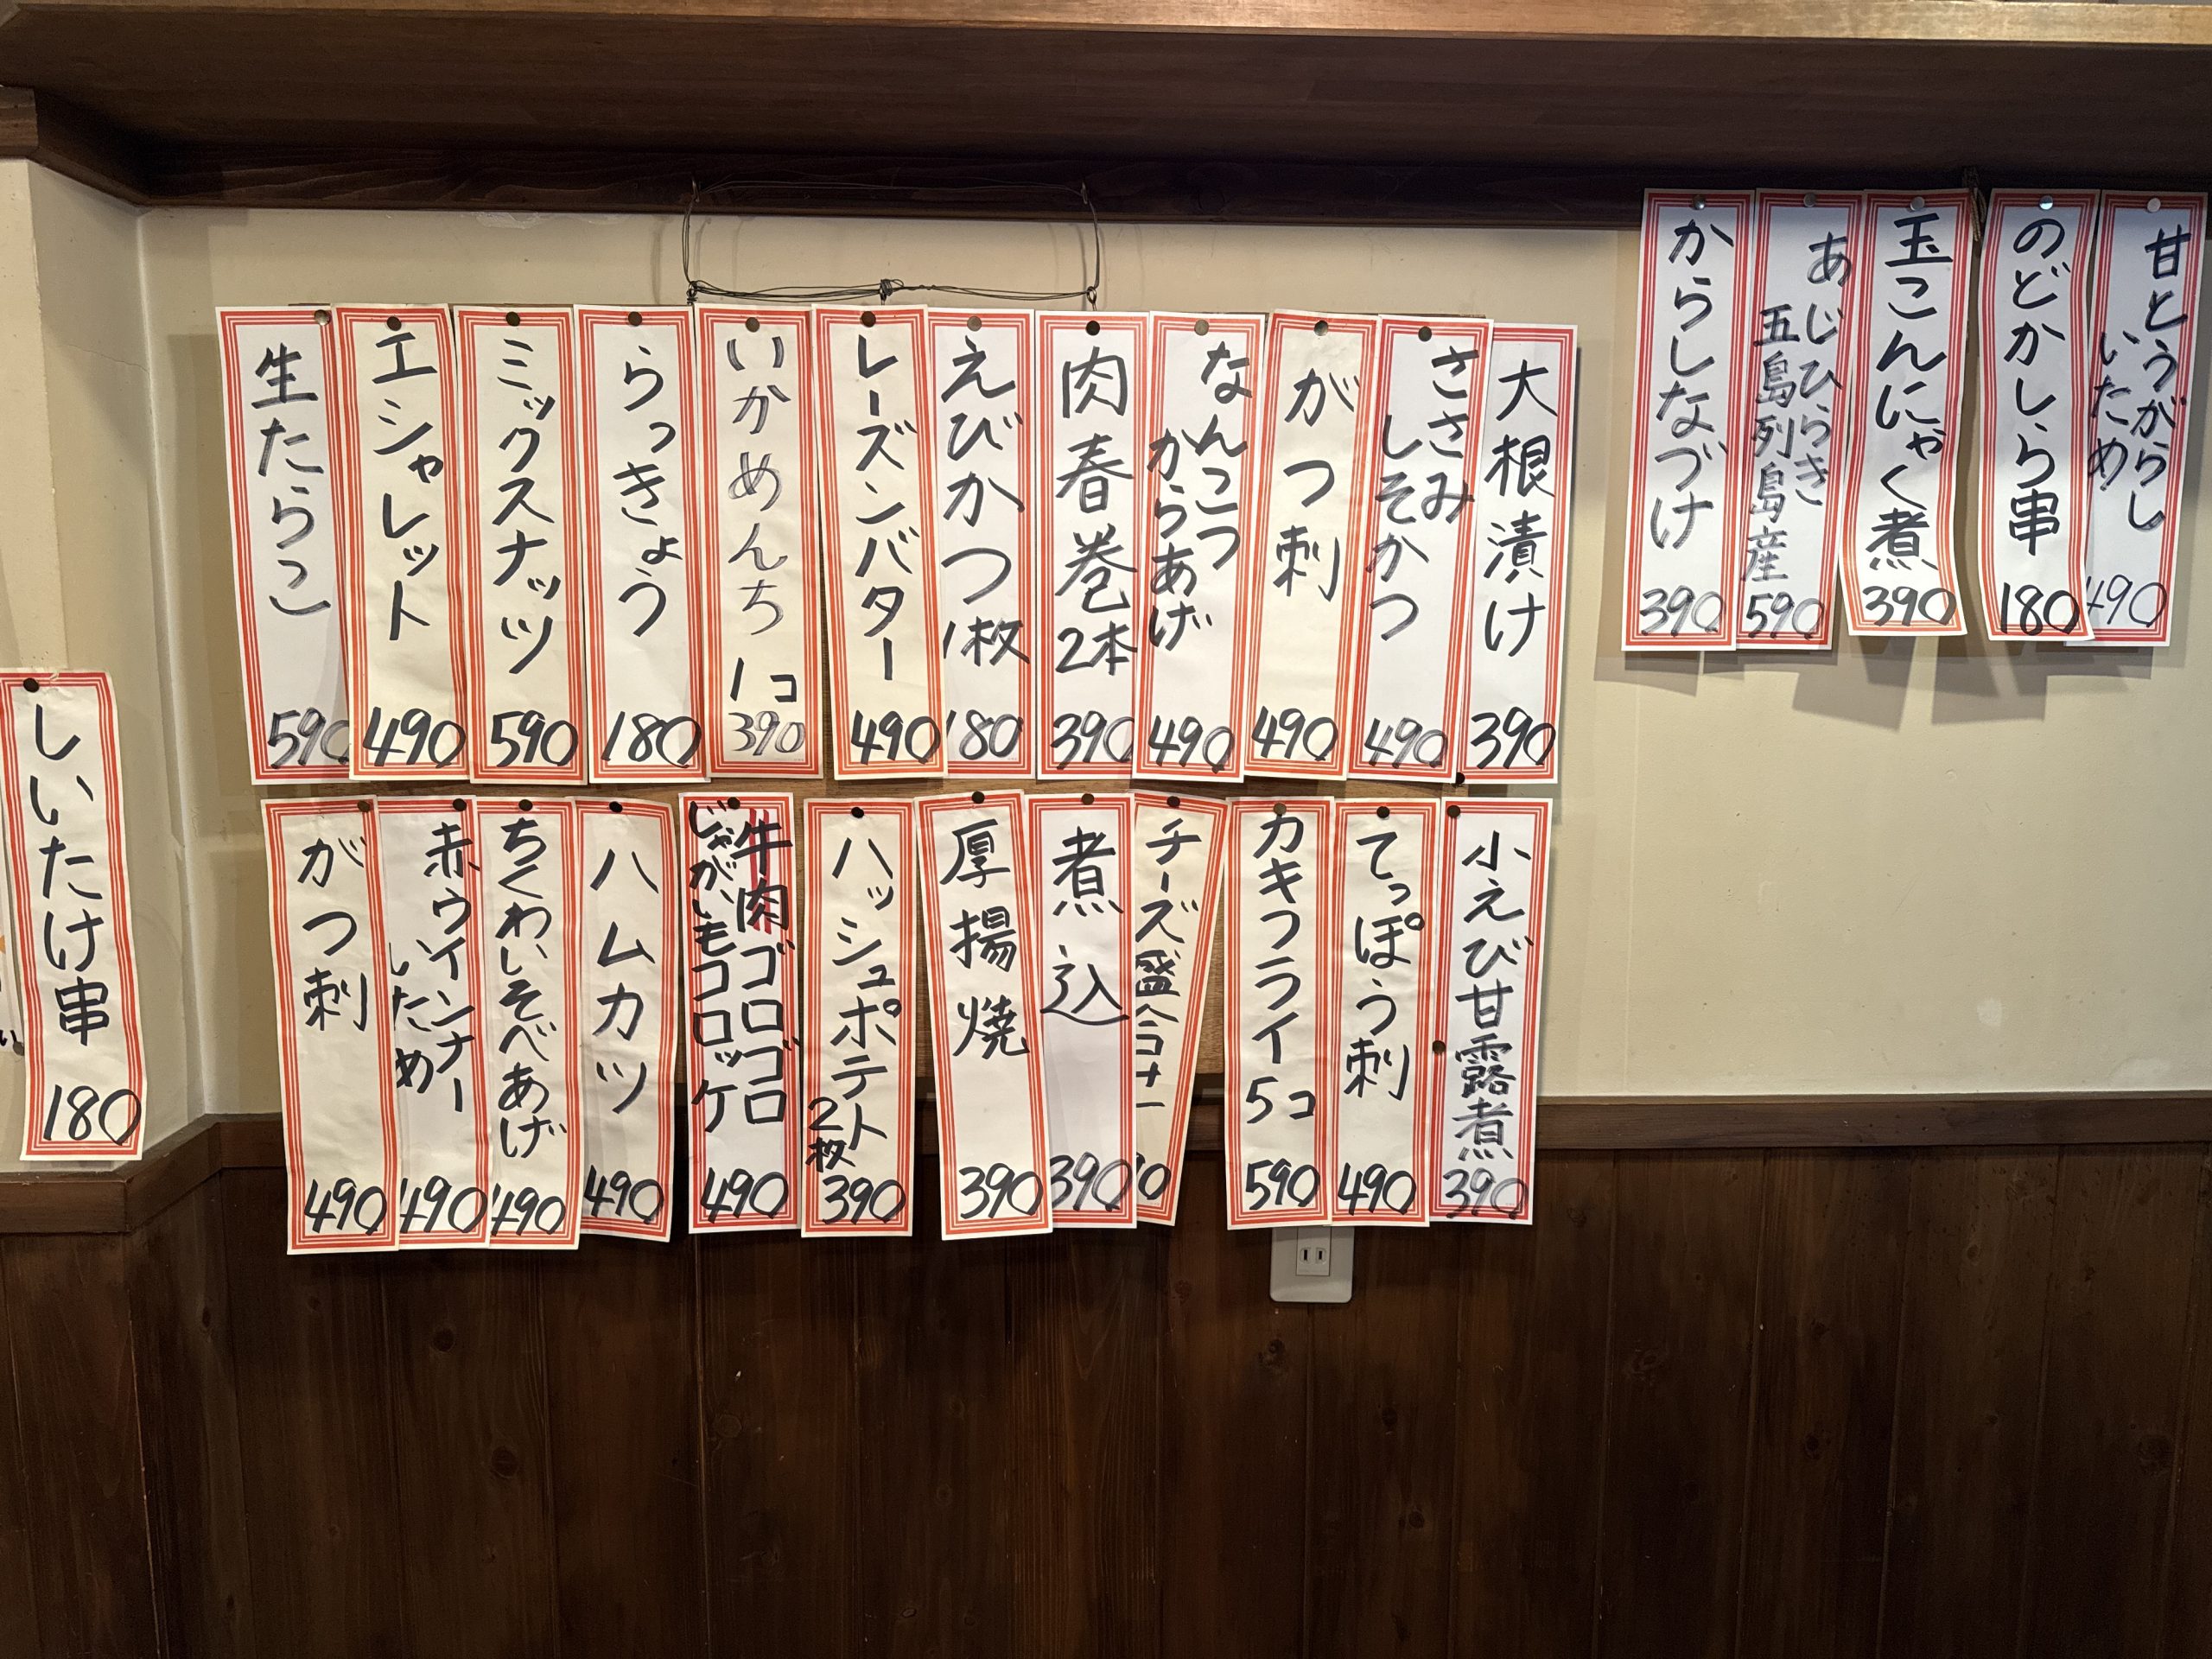 甘とうがらし
いため
490
のどかしら串
180
玉こんにゃく煮
390
あじひらき
五島列島産
590
からしなづけ
390
大根漬け
390
ささみ
しそかつ
490
がつ刺
490
なんこつ
からあげ
490
肉春巻2本
390
えびかつ1枚
180
レーズンバター
490
いかめんち
1コ
390
らっきょう
180
ミックスナッツ
590
エシャレット
490
生たらこ
590
小えび甘露煮
390
てっぽう刺
490
カキフライ5コ
590
チーズ盛
煮込
390
厚揚焼
390
ハッシュポテト
2枚
390
牛肉ゴロゴロ
じゃがいもコロッケ
490
ハムカツ
490
ちくわいそべあげ
490
赤ウインナー
いため
490
がつ刺
490
しいたけ串
180